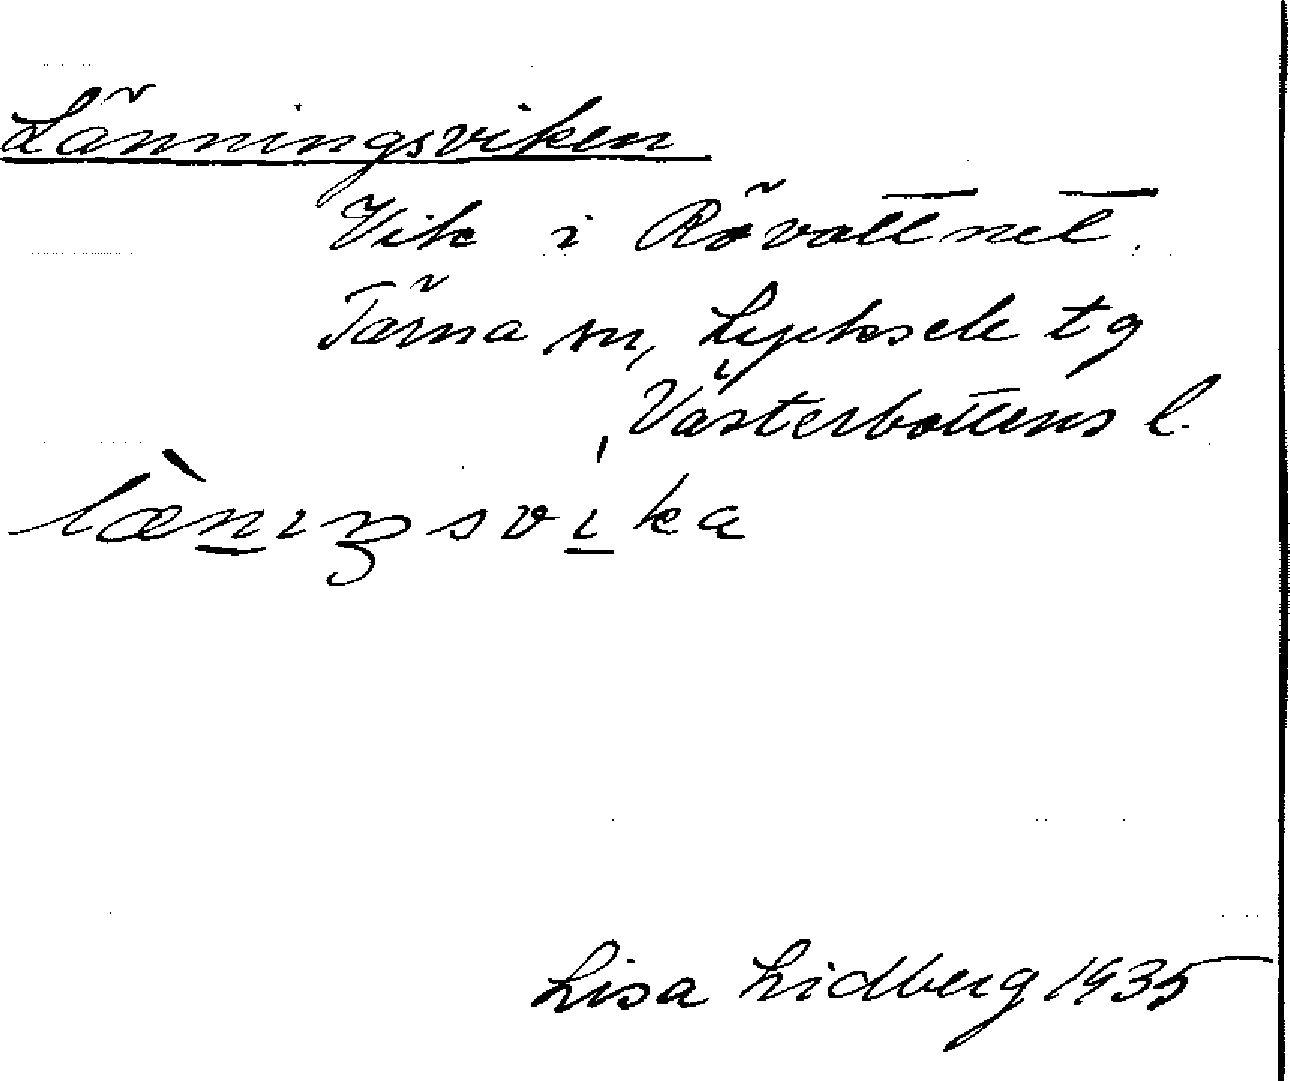 Länningsviken
Vik i Rövattnet.
Tärna sn, Lycksele tg
Västerbottens l.
lænıŋsvıka
Lisa Lidberg 1935